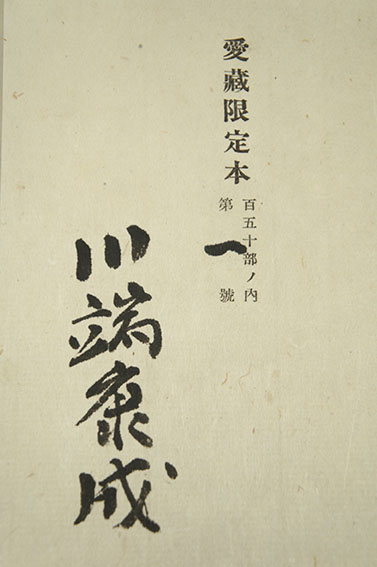 愛藏限定本
百五十部ノ內
第一號
川端康成